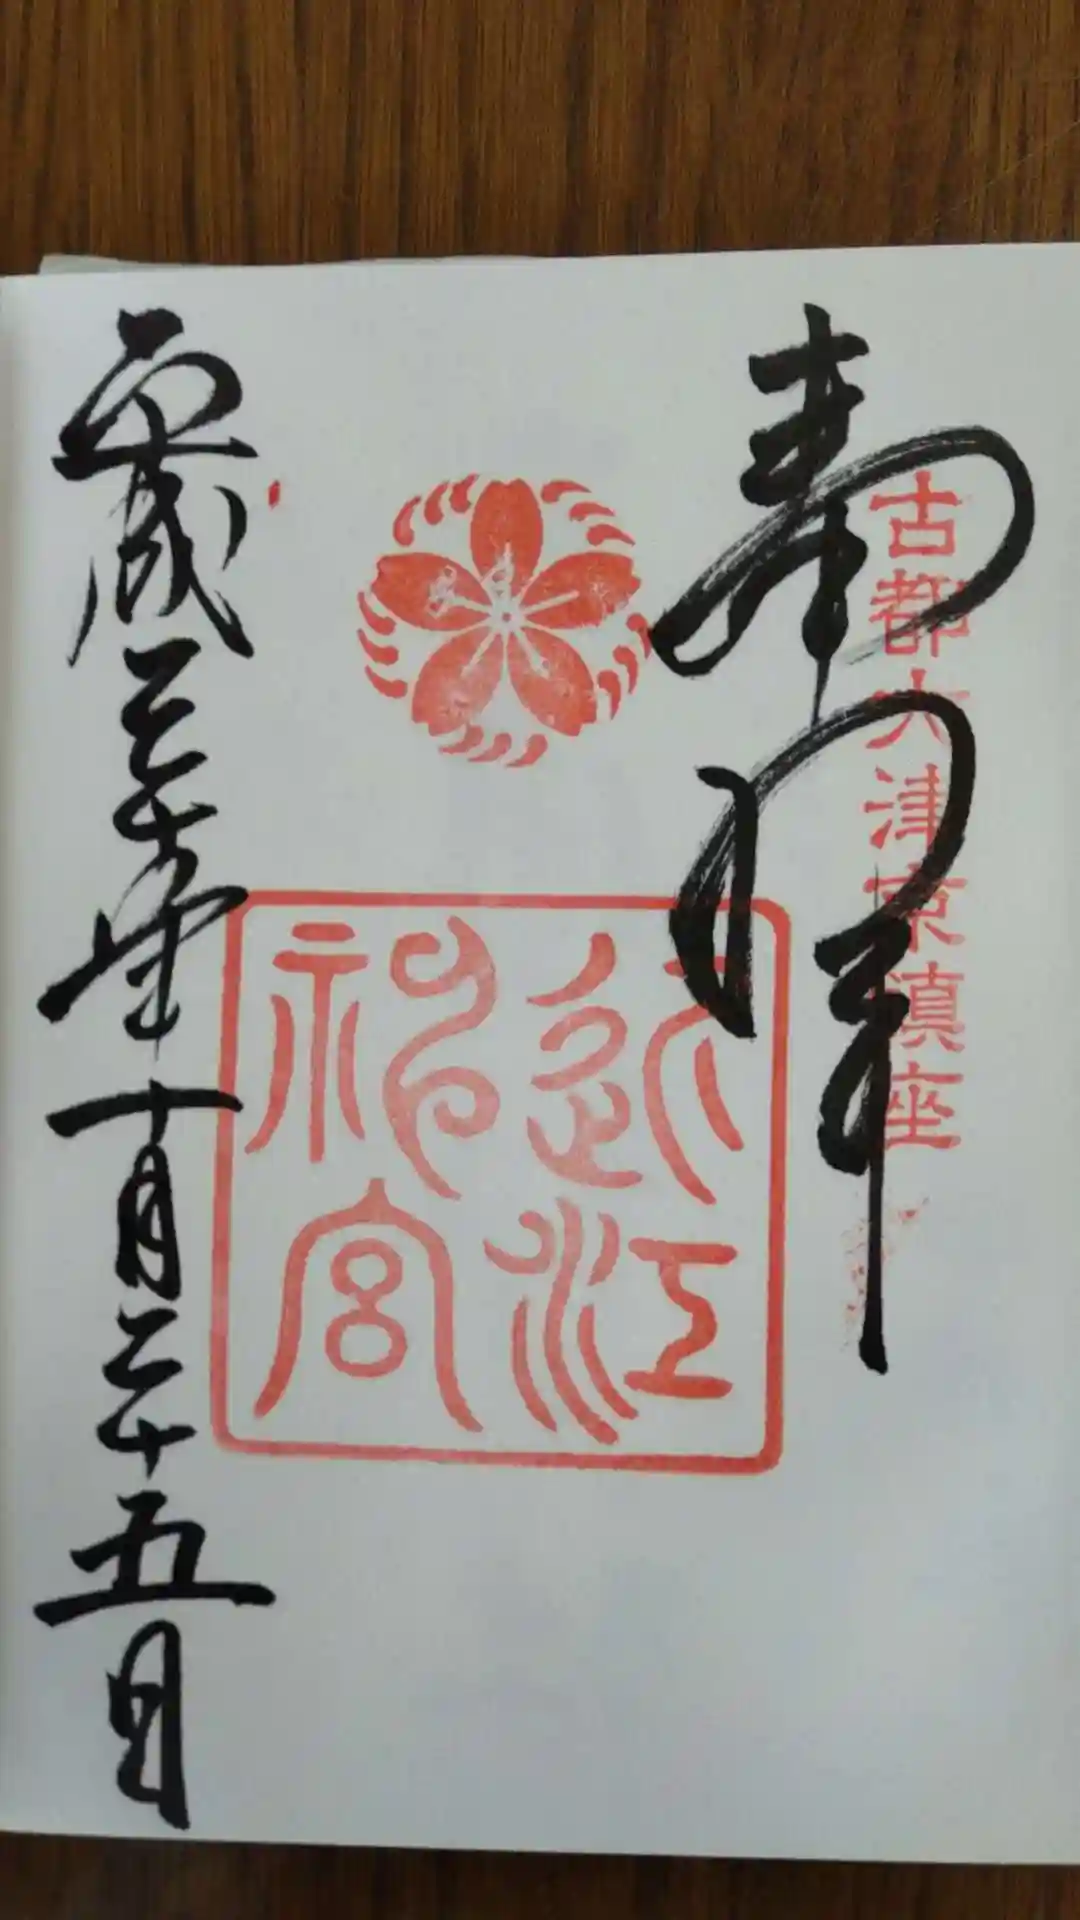 古都大津京鎮座
奉拝
近江
神宮
平成三十年十月二十五日